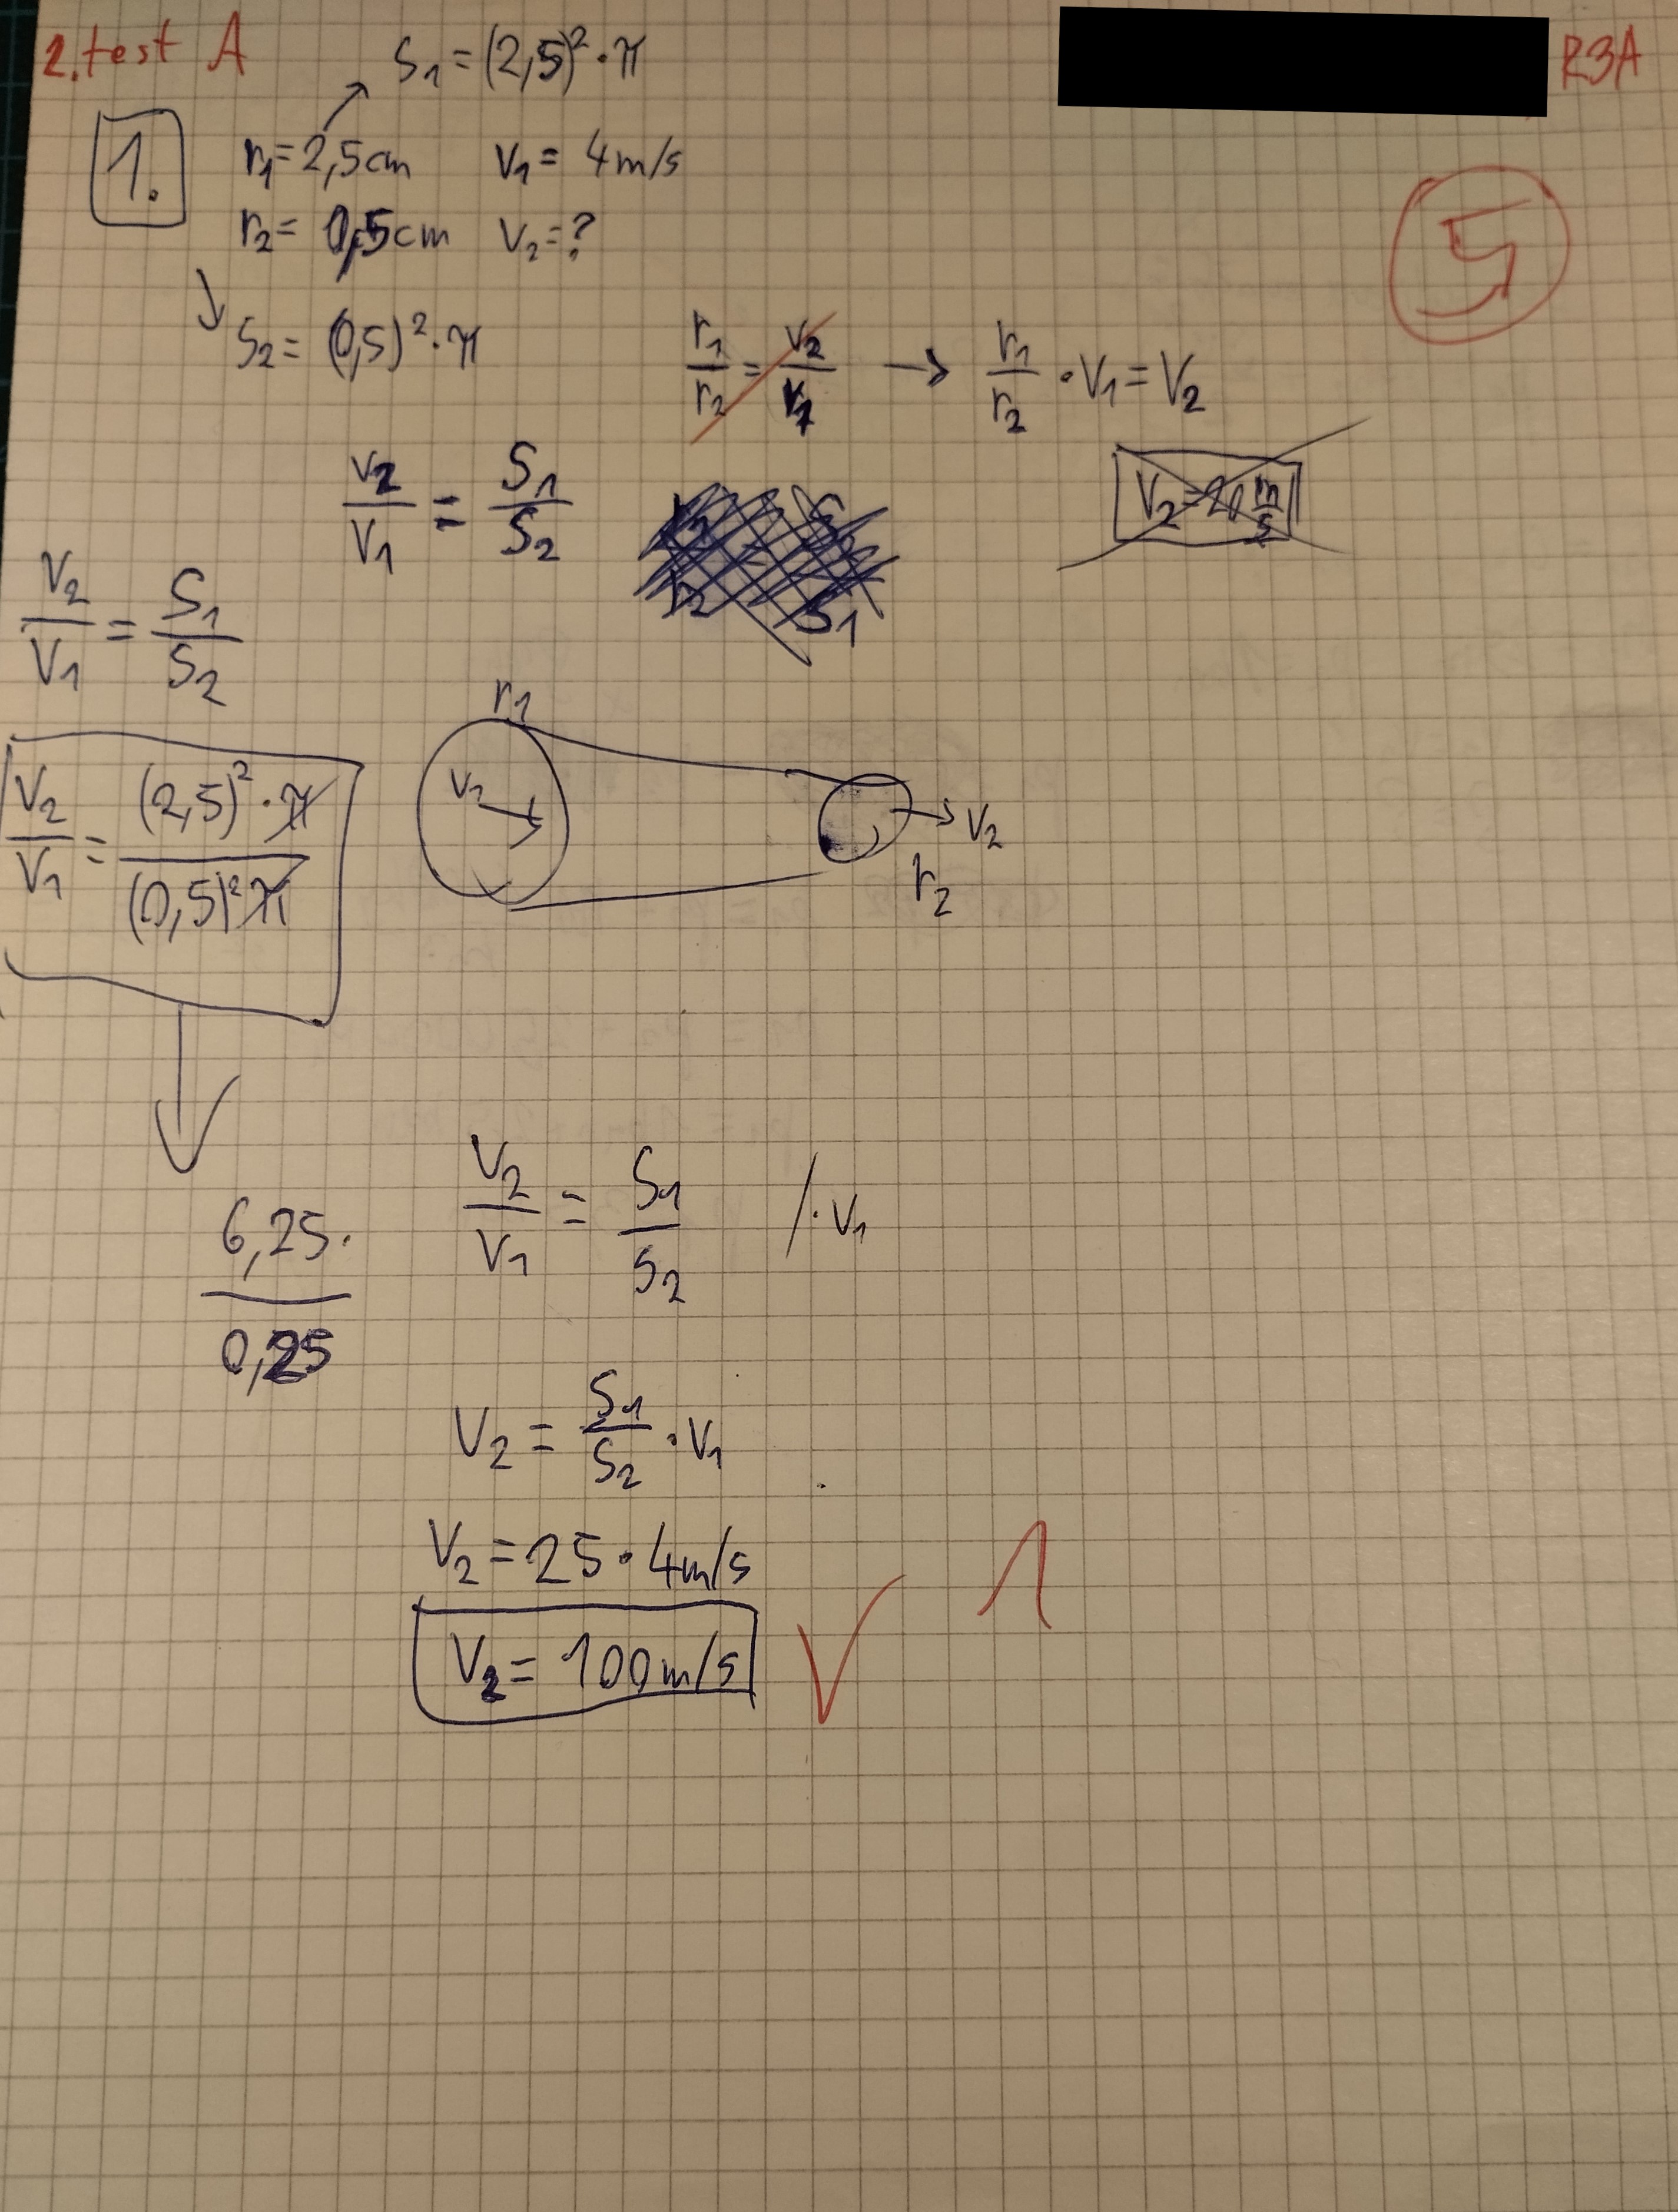 2. test A
R3A
S₁ = (2,5)² · π
1.
r₁ = 2,5 cm   v₁ = 4 m/s
r₂ = 0,5 cm   v₂ = ?
5
S₂ = (0,5)² · π
r₁/r₂ = v₂/v₁ → r₁/r₂ · v₁ = v₂
v₂ = 20 m/s
v₂/v₁ = S₁/S₂
v₂/v₁ = S₁/S₂
v₂/v₁ = (2,5)² · π / (0,5)² π
r₁
v₁
v₂
r₂
6,25 · / 0,25
v₂/v₁ = S₁/S₂   / · v₁
v₂ = S₁/S₂ · v₁
v₂ = 25 · 4 m/s
v₂ = 100 m/s
1